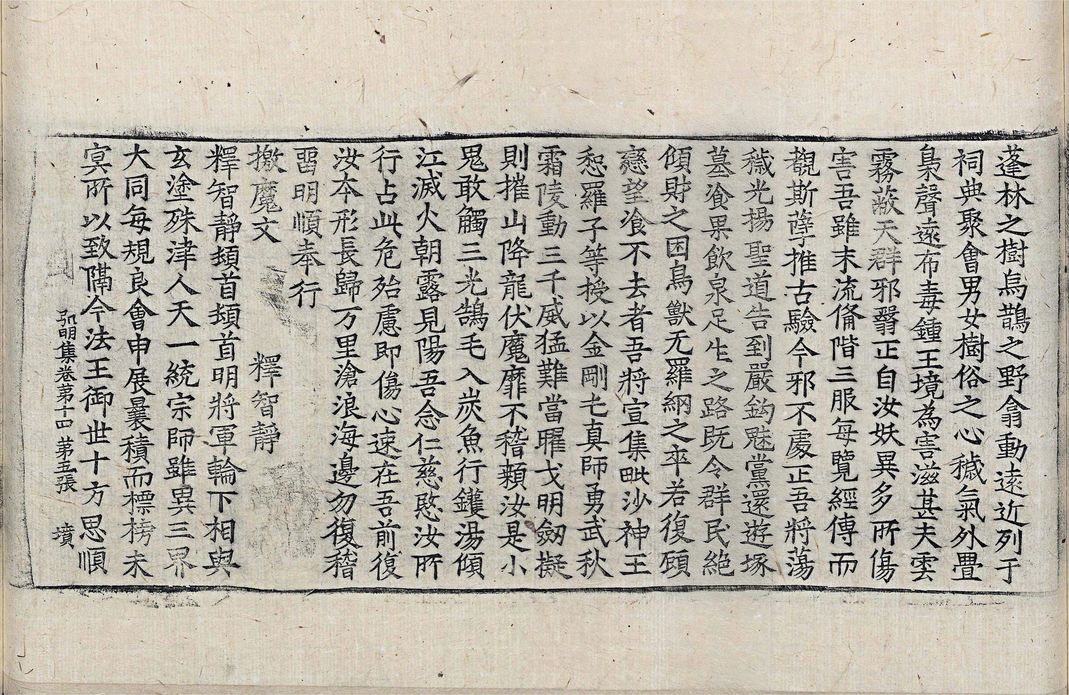 蓬林之樹鳥鵲之野翕動遠近列于
祠典聚會男女樹俗之心穢氣外疊
梟聲遠布毒鍾王境為害滋甚夫雲
霧蔽天群邪翳正自汝妖異多所傷
害吾雖末流俻階三服每覽經傳而
覩斯孽推古驗今邪不處正吾將蕩
穢光揚聖道告到嚴鉤魅黨還遊塚
墓飡果飲泉足生之路既令群民絶
傾財之困鳥獸无羅綱之卒若復顧
戀望飡不去者吾將宣集毗沙神王
恕羅子等授以金剛七真師勇武秋
霜陵動三千威猛難當曜戈明劔擬
則摧山降龍伏魔靡不稽顙汝是小
鬼敢觸三光鵠毛入炭魚行鑊湯傾
江滅火朝露見陽吾念仁慈愍汝所
行占此危殆慮即傷心速在吾前復
汝本形長歸万里滄浪海邊勿復稽
畱明順奉行
檄魔文 釋智靜
釋智靜頓首頓首明將軍輪下相與
玄塗殊津人天一統宗師雖異三界
大同每規良會申展曩積而標榜未
㝠所以致隔今法王御世十方思順
弘明集卷第十四 第五張 墳